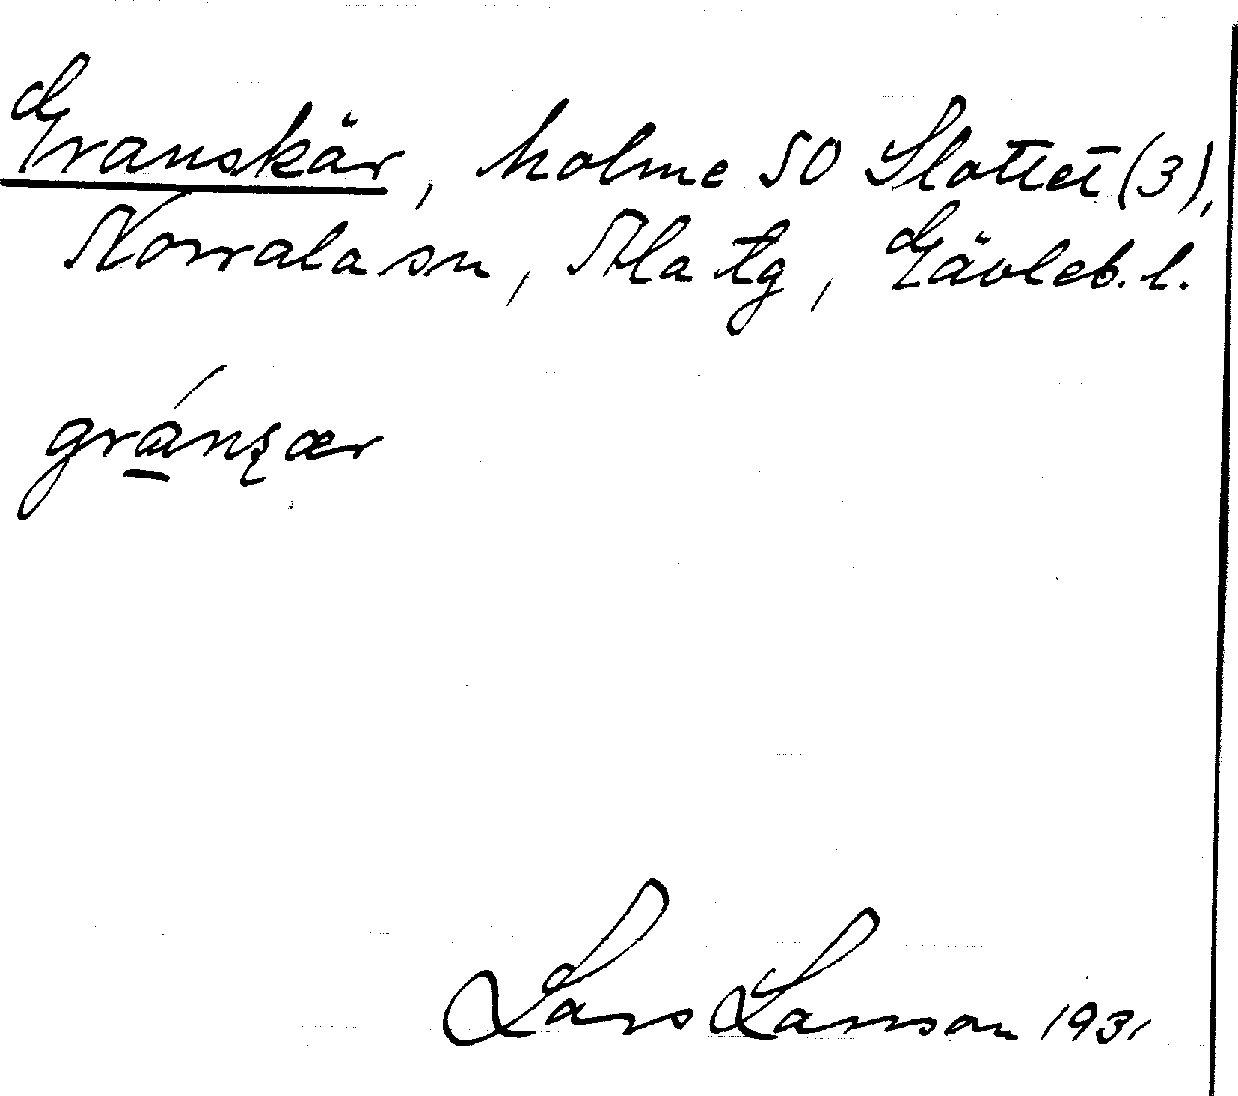 Granskär, holme SO Slottet (3),
Norrala sn, Ala tg, Gävleb. l.
gránşær
Lars Larsson 1931